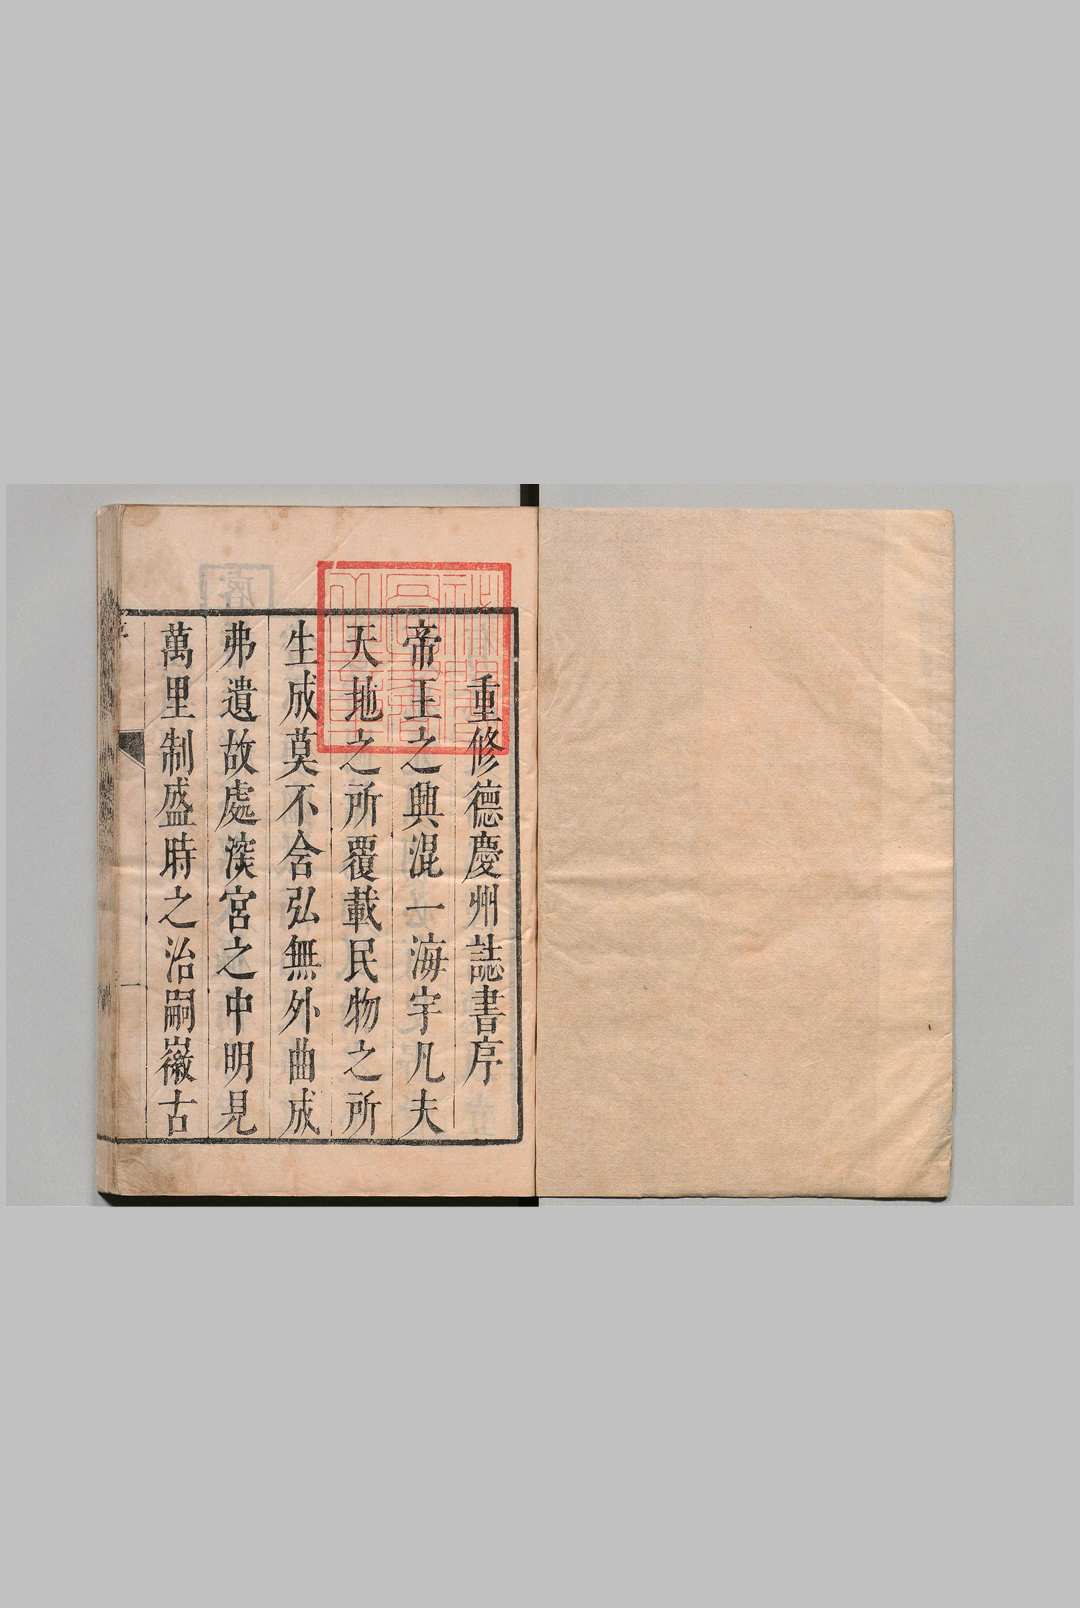 重修德慶州誌書序
帝王之興混一海宇凡夫
天地之所覆載民物之所
生成莫不含弘無外曲成
弗遺故處深宮之中明見
萬里制盛時之治嗣徽古
一